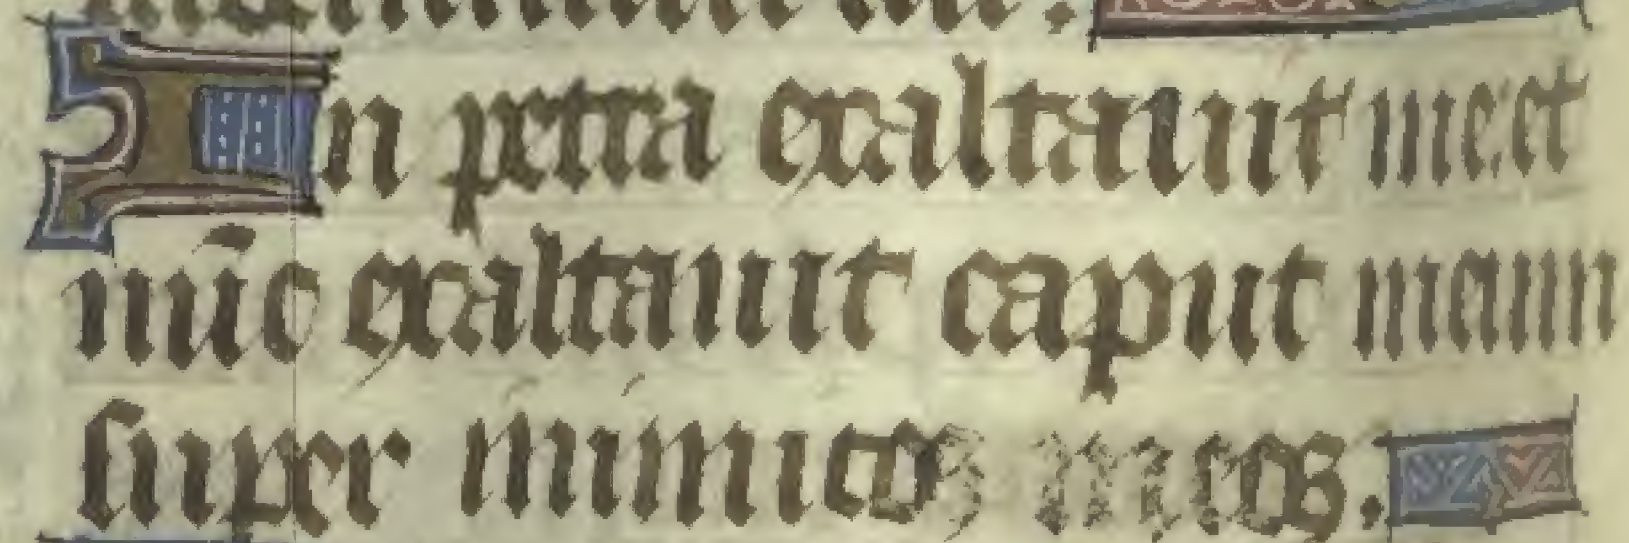 In petra exaltauit me: et
nūc exaltauit caput meum
super inimicos meos.